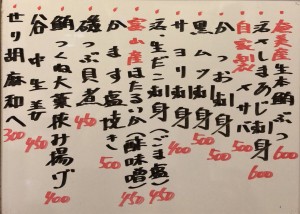 奄美産生本鮪ぶつ 600
活〆しまあじ刺身 600
自家製〆サバ 500
かつお刺身 500
黒ムツ刺身 500
サヨリ刺身 400
活生だこ刺身(ごま塩) 450
富山産ほたるいか(酢味噌) 450
かます塩焼き 500
磯つぶ貝煮 450
鮪つくね大葉挟み揚げ 400
谷中生姜 450
せり胡麻和へ 300